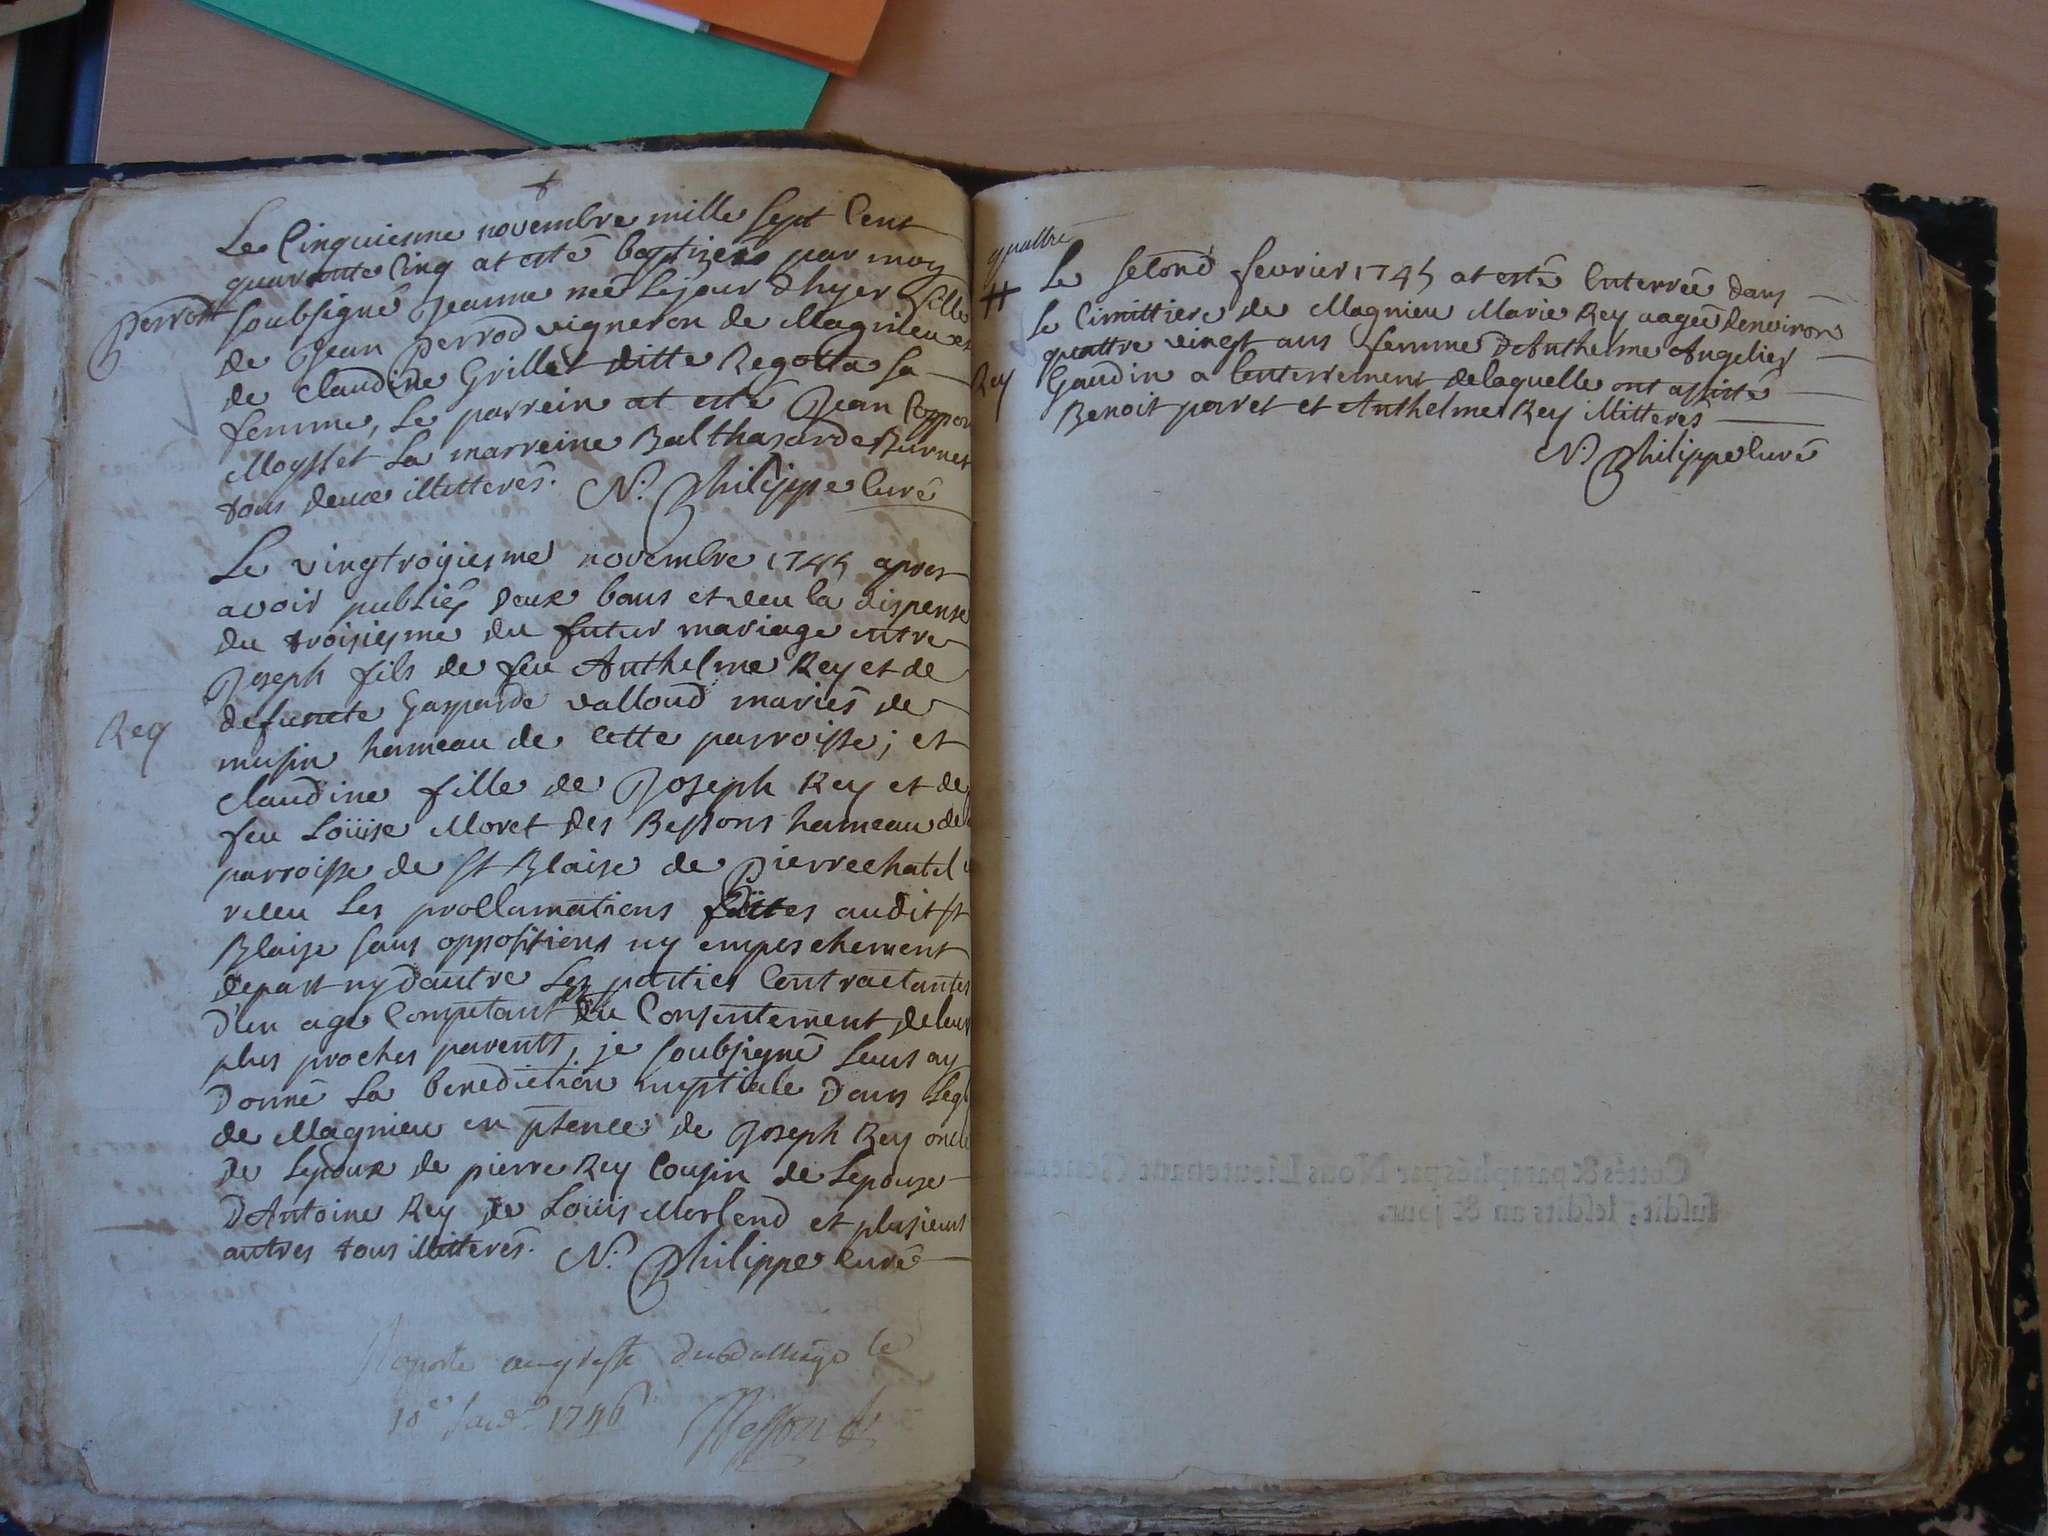 Le Cinquiesme novembre mille sept Cent
quarante Cinq at esté baptizeé par moy
Perrod soubsigné Jeanne née Le jour dhyer fille
de Jean Perrod vigneron de Magnieu et
de Claudine Grillet ditte Regotta sa
femme, Le parrein at esté Jean
Moysset La marreine Balthazarde Burnet
tous deux illitterés. N. Philippe Curé
Le vingtroisiesme novembre 1745 apres
avoir publiés deux bans et veu la dispense
du troisiesme du futur mariage entre
Joseph fils de feu Anthelme Rey et de
defuncte Gasparde Valloud mariés de
Rey
musin hameau de Cette parroisse; et
Claudine fille de Joseph Rey et de
feu Loüise Moret des Bessons hameau de
parroisse de St Blaise de Pierrechatel
veu Les proclamations faittes audit St
Blaise sans oppositions ny empeschement
depart ny dautre Les parties Contractantes
d'un age Competant du Consentement de leur
plus proches parents, je soubsigné Leurs ay
donné La benediction nuptiale dans Leg
de Magnieu en pñence de Joseph Rey oncle
de Lepoux de pierre Rey Cousin de Lepouse
dAntoine Rey de Loüis Merlend et plusieurs
autres tous illitterés. N. Philippe Curé
Raporté au greffe du Balliage le
10e Janv. 1746
quattre
Le second fevrier 1745 at esté Enterrée dans
le Cimittiere de Magnieu Marie Rey aageé denviron
quattre vingt ans femme dAnthelme Angelier
Rey Gaudin a Lenterrement de laquelle ont assisté
Benoit pervet et Anthelme Rey illitterés
N. Philippe Curé
Cottés & paraphés par Nous Lieutenant General
susdit, lesdits an & jour.